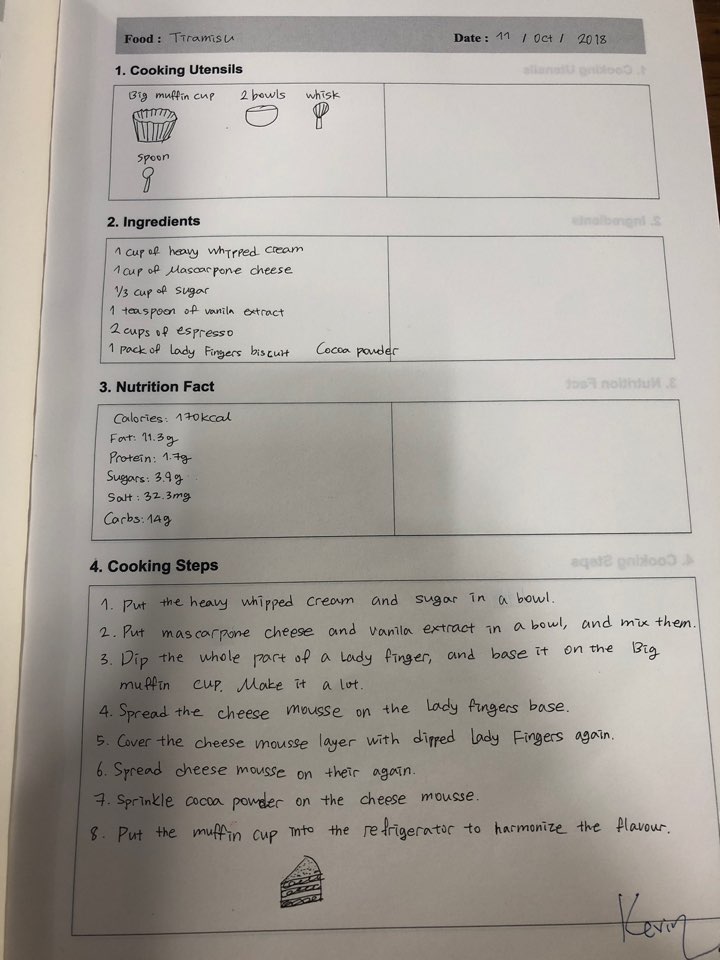 Food : Tiramisu Date : 11 / Oct / 2018
1. Cooking Utensils
Big muffin cup 2 bowls whisk
spoon
2. Ingredients
1 cup of heavy whipped cream
1 cup of Mascarpone cheese
1/3 cup of sugar
1 teaspoon of vanila extract
2 cups of espresso
1 pack of Lady Fingers biscuit Cocoa powder
3. Nutrition Fact
Calories: 170kcal
Fat: 11.3g
Protein: 1.7g
Sugars: 3.9g
Salt: 32.3mg
Carbs: 14g
4. Cooking Steps
1. Put the heavy whipped cream and sugar in a bowl.
2. Put mascarpone cheese and vanila extract in a bowl, and mix them.
3. Dip the whole part of a Lady finger, and base it on the Big
muffin cup. Make it a lot.
4. Spread the cheese mousse on the Lady fingers base.
5. Cover the cheese mousse layer with dipped Lady Fingers again.
6. Spread cheese mousse on their again.
7. Sprinkle cocoa powder on the cheese mousse.
8. Put the muffin cup into the refrigerator to harmonize the flavour.
Kevin